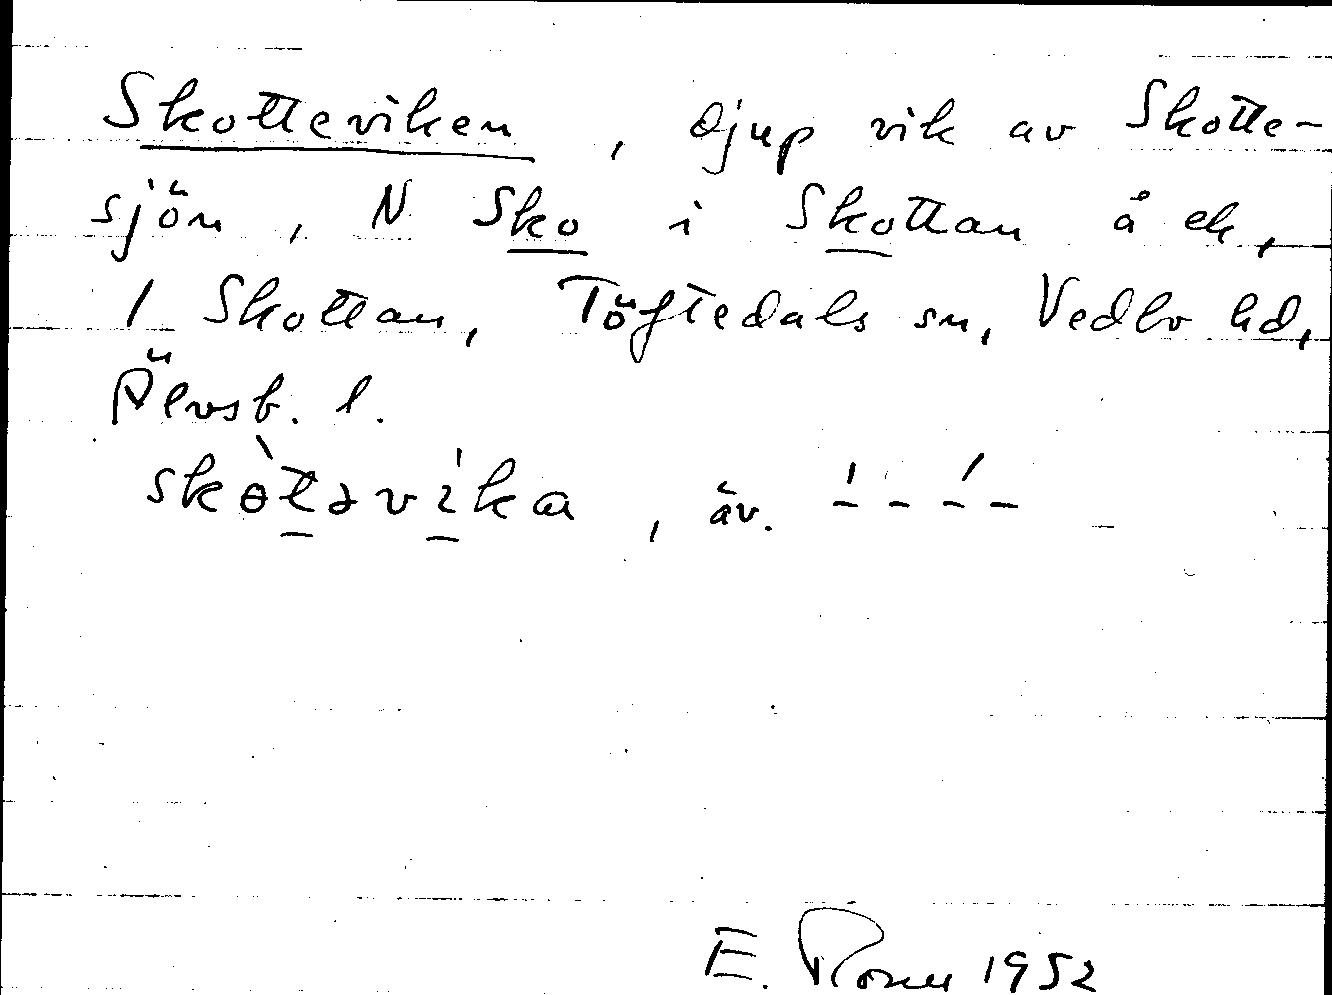 Skotteviken, djup vik av Skotte-
sjön, N Sko i Skottan å ek,
1 Skottan, Töftedals sn, Vedbo hd,
Älvsb. l.
skòtəvíka, äv. ´ - - ´ -
E. 1952